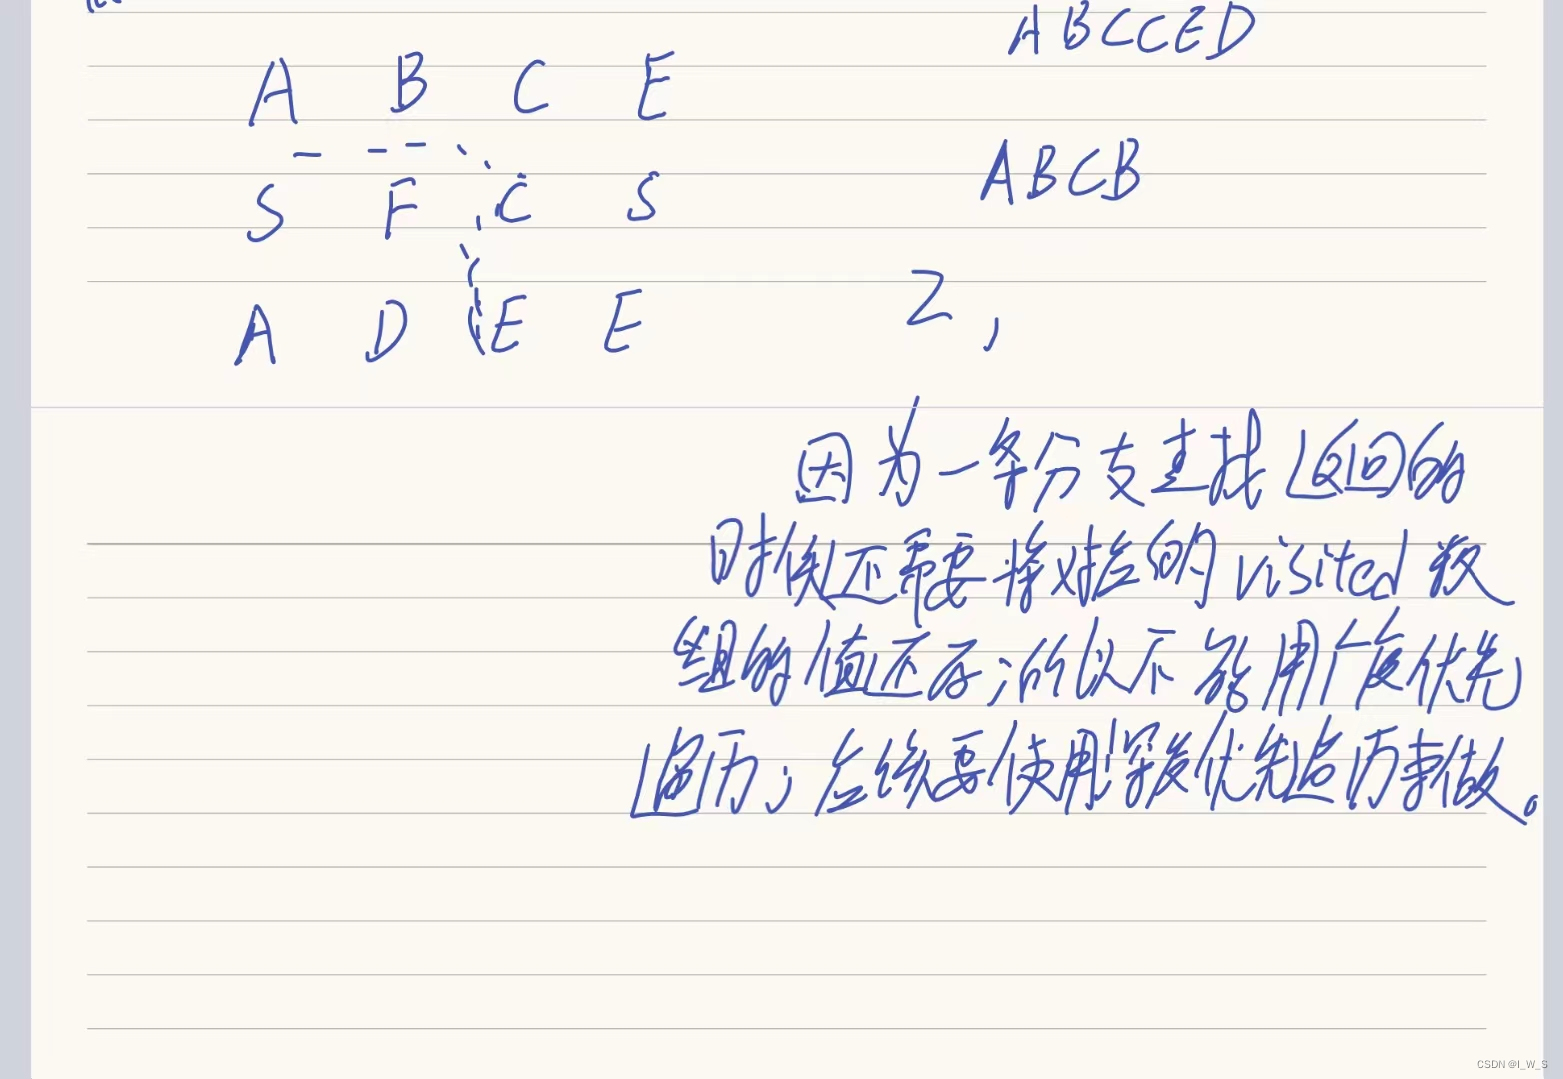 ABCCED
A B C E
ABCB
S F C S
A D E E
2,
因为一条分支查找返回的
时候还需要将对应的visited数
组的值还原;所以不能用广度优先
遍历;应该要使用深度优先遍历来做。
CSDN @I_W_S